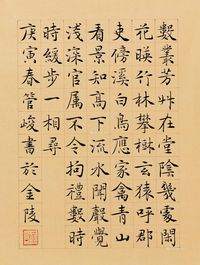 數叢芳艸在堂陰幾處閒
花暎竹林攀樹玄猿呼郡
吏傍溪白鳥應家禽青山
看景知高下流水聞聲覺
淺深官屬不令拘禮數時
時緩步一相尋
庚寅春管峻書於金陵